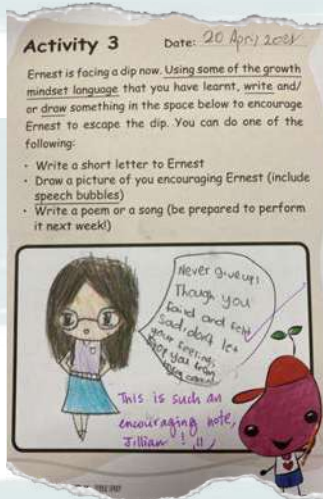 Activity 3
Date: 20 April 2021
Ernest is facing a dip now. Using some of the growth
mindset language that you have learnt, write and/
or draw something in the space below to encourage
Ernest to escape the dip. You can do one of the
following:
· Write a short letter to Ernest
· Draw a picture of you encouraging Ernest (include
speech bubbles)
· Write a poem or a song (be prepared to perform
it next week!)
Never give up!
Though you
faild and felt
sad, don't let
your feelings
stop you from
This is such an
encouraging note,
Jillian!!!